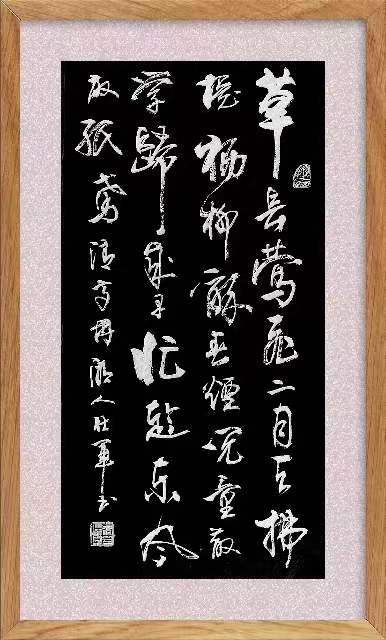 草長鶯飛二月天拂
堤楊柳醉春煙兒童散
學歸來早忙趁東風
放紙鳶清高鼎人壯軍書